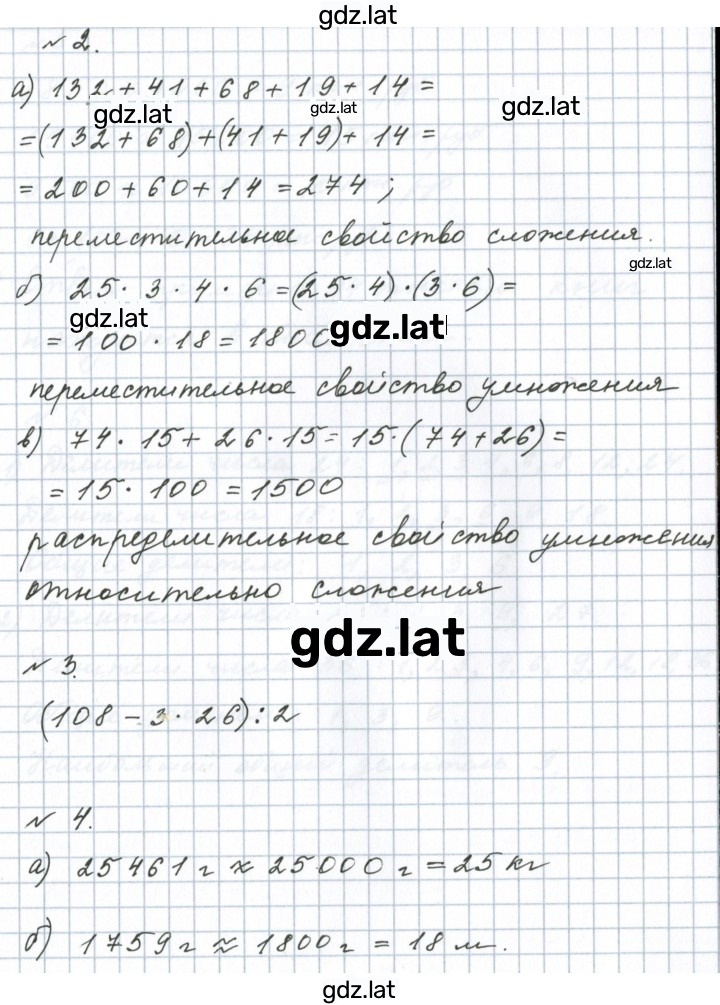 gdz.lat
№ 2.
а) 132 + 41 + 68 + 19 + 14 =
gdz.lat gdz.lat gdz.lat
= (132 + 68) + (41 + 19) + 14 =
= 200 + 60 + 14 = 274 ;
переместительное свойство сложения.
gdz.lat
б) 25 · 3 · 4 · 6 = (25 · 4) · (3 · 6) =
gdz.lat gdz.lat
= 100 · 18 = 1800
переместительное свойство умножения
в) 74 · 15 + 26 · 15 = 15 · (74 + 26) =
= 15 · 100 = 1500
распределительное свойство умножения
относительно сложения
gdz.lat
№ 3.
(108 - 3 · 26) : 2
№ 4.
а) 25461 г ≈ 25000 г = 25 кг
б) 1759 г ≈ 1800 г = 18 м.
gdz.lat